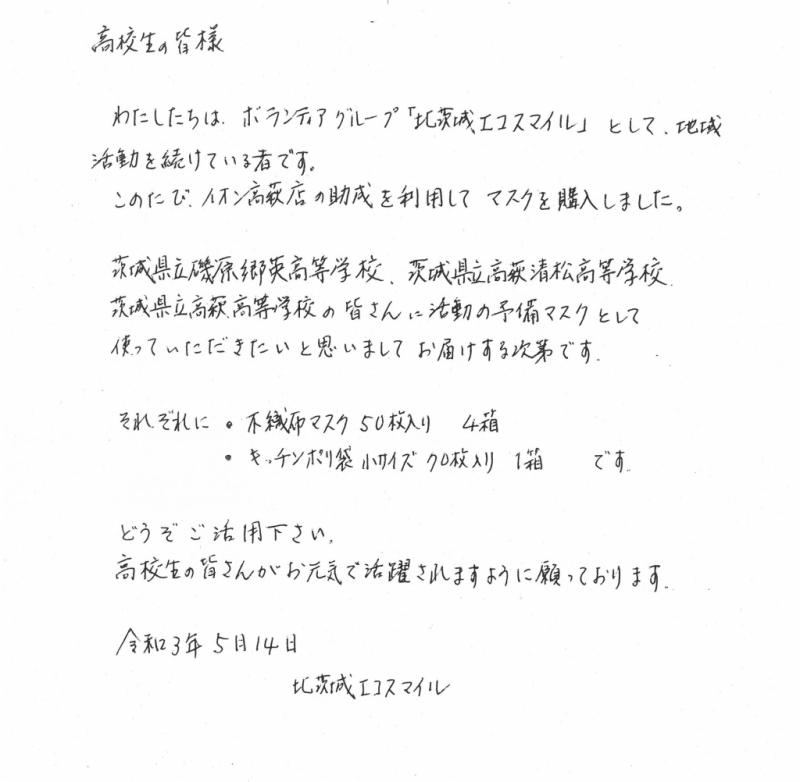 高校生の皆様
わたしたちは、ボランティアグループ「北茨城エコスマイル」として、地域
活動を続けている者です。
このたび、イオン高萩店の助成を利用して マスクを購入しました。
茨城県立磯原郷英高等学校、茨城県立高萩清松高等学校、
茨城県立高萩高等学校の皆さんに活動の予備マスクとして
使っていただきたいと思いまして お届けする次第です。
それぞれに ・不織布マスク 50枚入り 4箱
・キッチンポリ袋 小サイズ 70枚入り 1箱 です。
どうぞご活用下さい。
高校生の皆さんがお元気で活躍されますように願っております。
令和3年 5月14日
北茨城エコスマイル